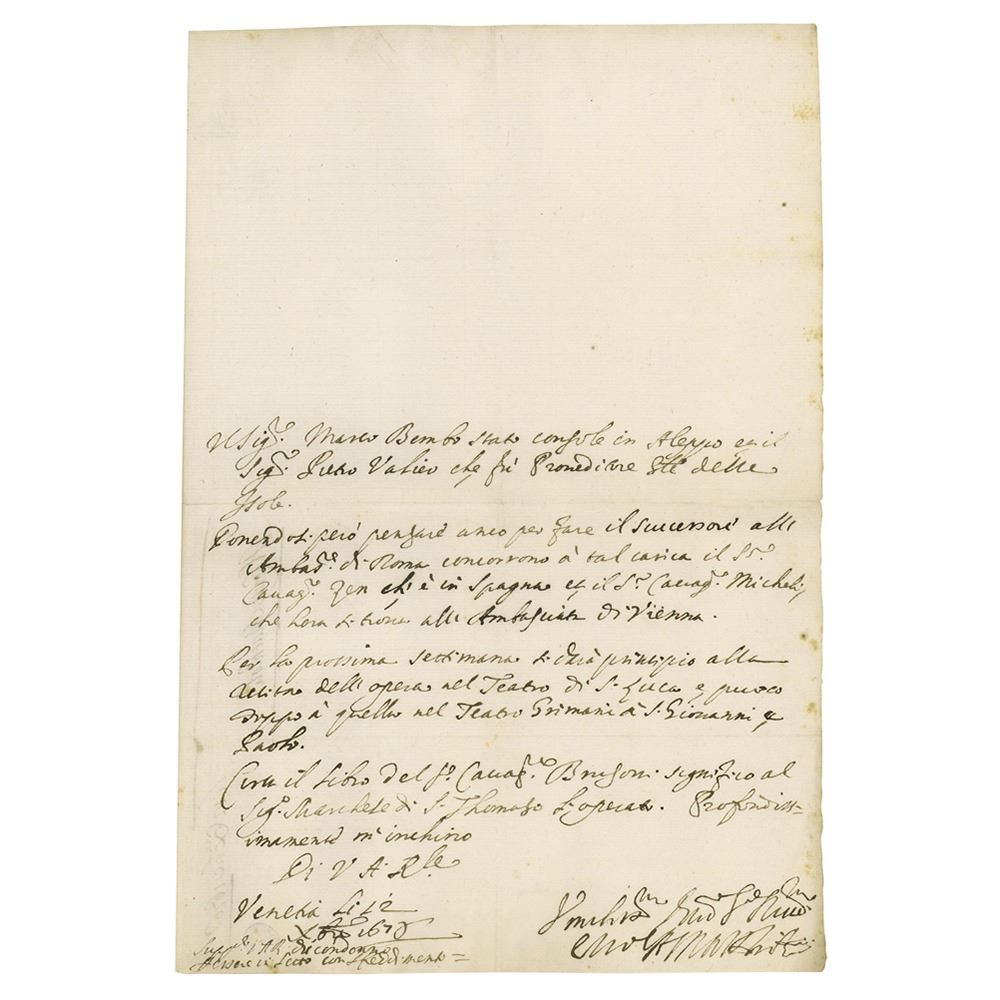 Il Sig.r Marco Bembo stato console in Aleppo et il
Sig.r Pietro Valier che fù Proueditore delle
Isole.
Douendosi però pensare anco per fare il successore all'
Ambas.re di Roma concorrono à tal carica il S.r
Cauag.r Zen ch'è in Spagna et il S.r Cauag.r Micheli,
che hora si troua all' Ambasciata di Vienna.
Per la prossima settimana si darà principio alla
recita dell'opera nel Teatro di S. Luca e puoco
doppo à quella nel Teatro Grimani à S. Giouanni e
Paolo.
Circa il libro del S.r Cauag.r Brusoni significo al
Sig.r Marchese di S. Thomaso l'operato. Profondiss=
imamente m'inchino
Di V. A. R.le
Venetia li 12
Xbre 1678